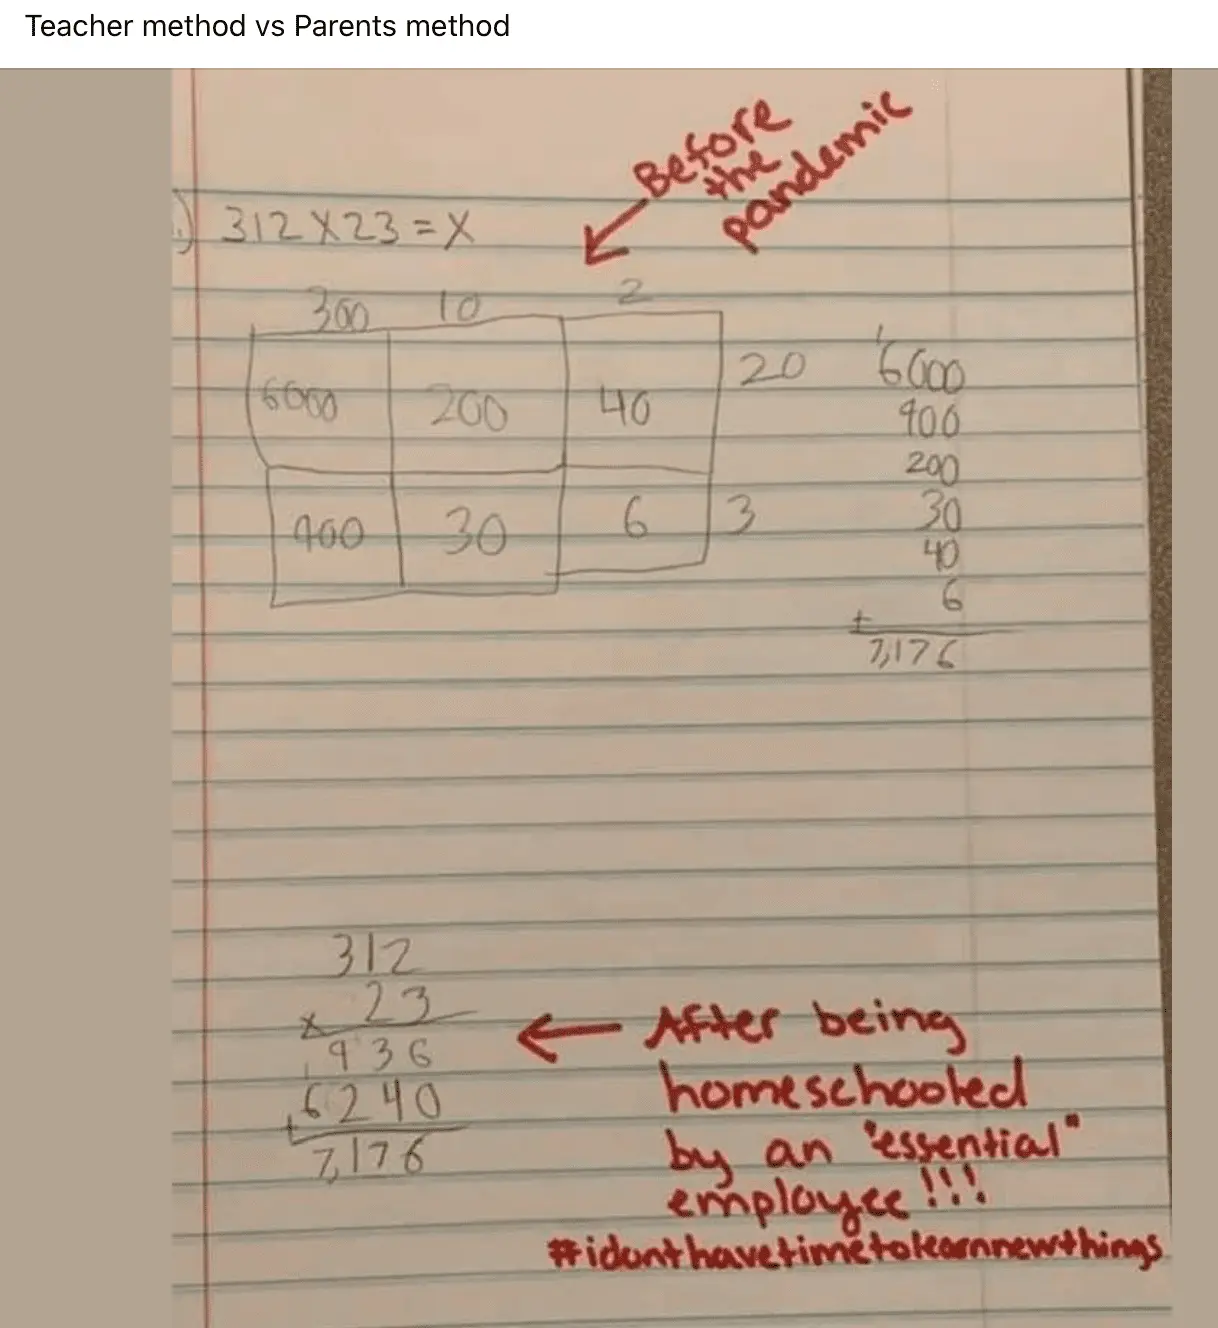 Teacher method vs Parents method
Before
the
pandemic
.) 312 X 23 = X
300 10 2
6000 200 40 20
900 30 6 3
1
6000
900
200
30
40
6
+
7,176
312
x 23
936
6240
+
7,176
After being
homeschooled
by an "essential"
employee!!!
#idonthavetimetolearnnewthings